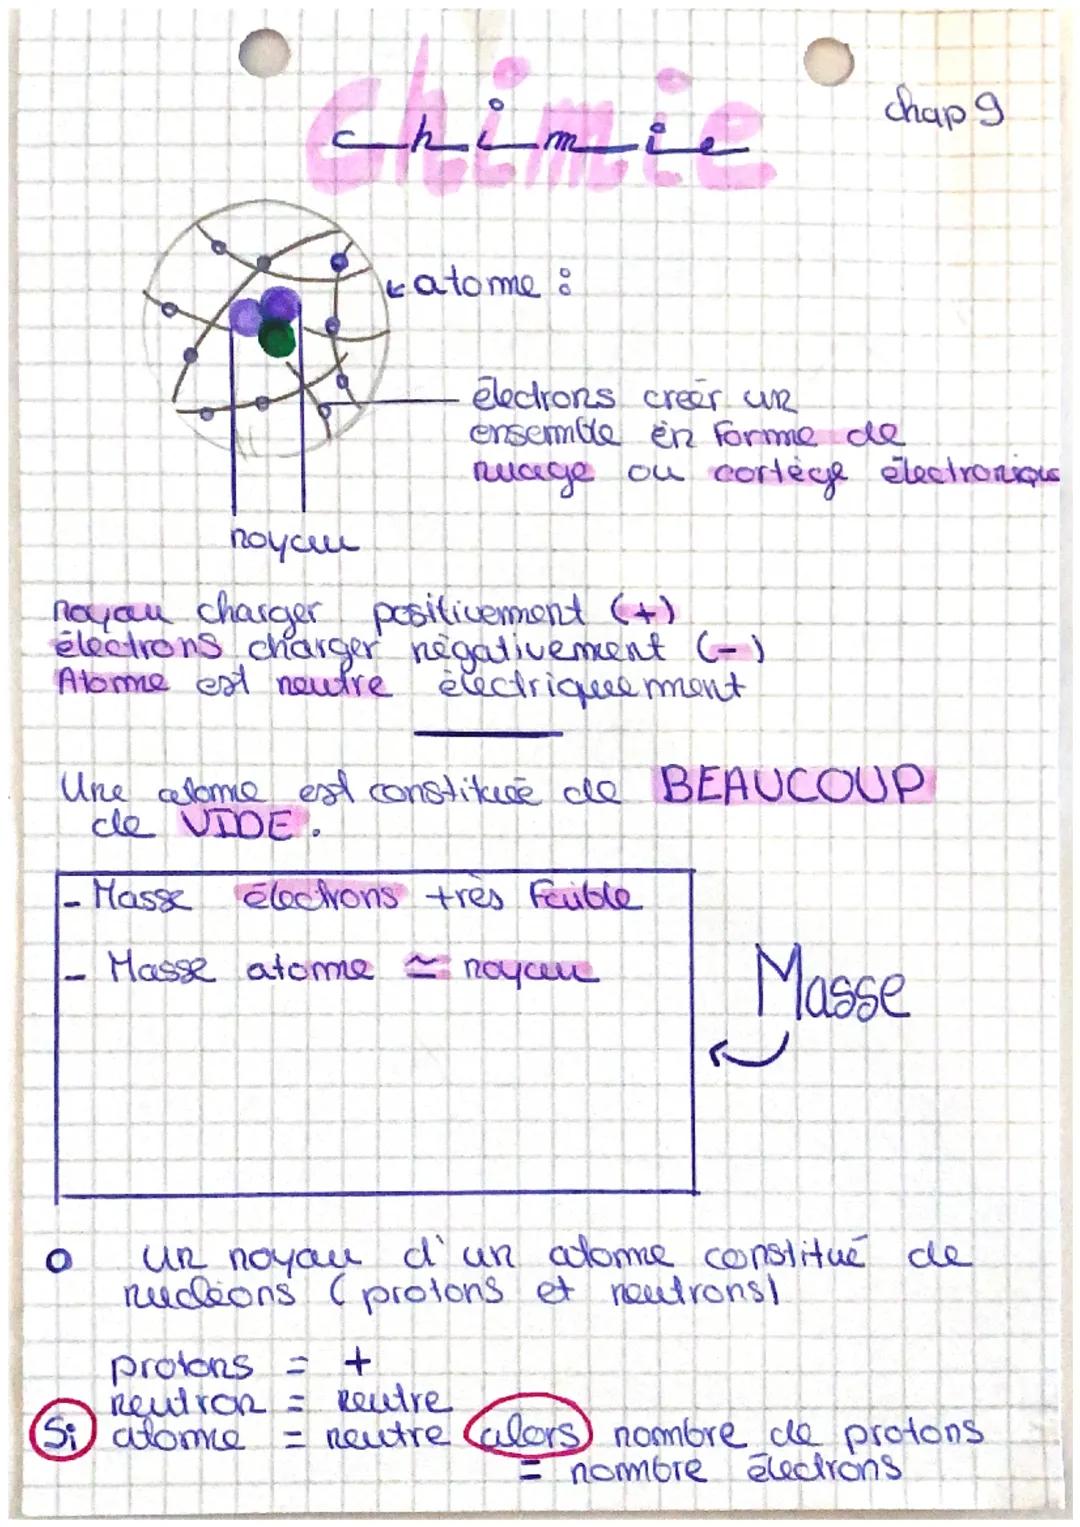 chimie
chap 9
atome :
électrons creér un
ensemble en forme de
nuage ou cortège électronique
noyau
noyau charger positivement (+)
électrons charger négativement (-)
Atome est neutre électriquement
Une atome est constitué de BEAUCOUP
de VIDE.
- Masse électrons très faible
- Masse atome ≃ noyau
Masse
o un noyau d'un atome constitué de
nucléons (protons et neutrons)
protons = +
neutron = neutre
Si atome = neutre alors nombre de protons
= nombre électrons